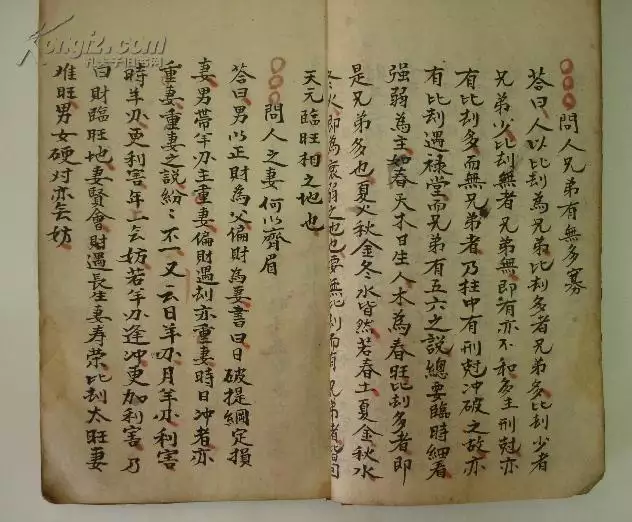 〇〇〇問人兄弟有無多寡
答曰人以比刦為兄弟比刦多者兄弟多比刦少者
兄弟少比刦無者兄弟無即有亦不和多主刑尅亦
有比刦多而無兄弟者乃柱中有刑尅冲破之故亦
有比刦遇祿堂而兄弟有五六之說總要臨時細看
强弱為主如春天木日生人木為春旺比刦多者即
是兄弟多也夏火秋金冬水皆然若春土夏金秋水
冬火即為衰弱之也要無比刦而有兄弟者皆因
天元臨旺相之地也
〇〇〇問人之妻何以齊眉
答曰男以正財為父偏財為妻書曰日破提綱定損
妻男帶羊刃主重妻偏財遇刦亦重妻時日冲者亦
重妻重妻之說紛〻不一又云日羊刃月羊刃利害
時羊刃更利害年上无妨若羊刃逢冲更加利害乃
曰財臨旺地妻賢會財遇長生妻壽荣比刦太旺妻
难旺男女硬对亦无妨
Kongfz.com
孔夫子旧书网